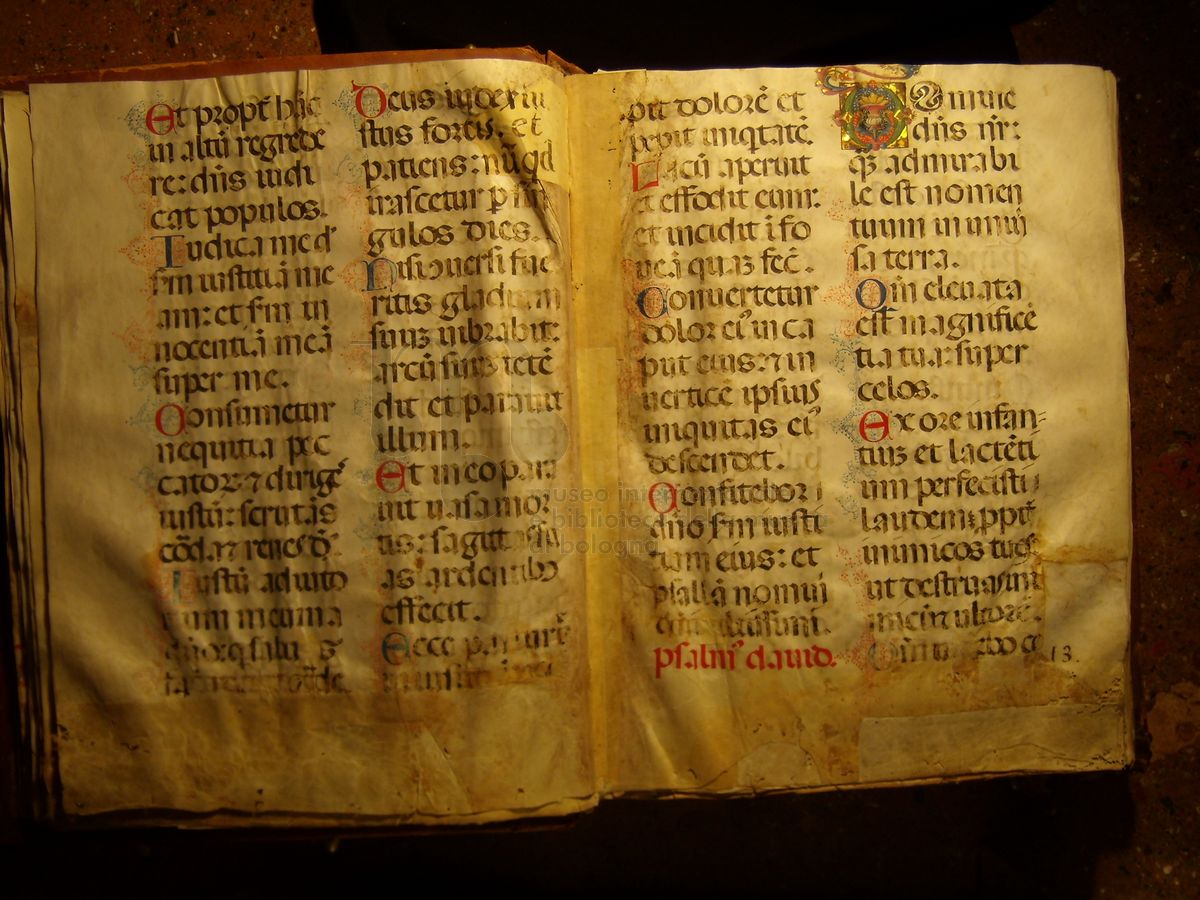 Et propt̃ hãc
in altũ regrede
re: dñs iudi
cat populos.
Iudica me dñe
s̃m iustitiã me
am: et s̃m in
nocentiã meã
super me.
Consumetur
nequitia pec
catoꝝ ⁊ dirigẽs
iustũ: scrutãs
corda ⁊ renes
Iustũ adiuto
rium meum a
dño: q saluos
Deus iudex iu
stus fortis. et
patiens: nũqd
irascetur p sin
gulos dies.
Nisi ɔuersi fue
ritis gladium
suuꝫ uibrabit:
arcũ suuꝫ tetẽ
dit et parauit
illum.
Et in eo para
uit uasa mor
tis: sagittas su
as ardentibꝰ
effecit.
Ecce parturi
pit dolorẽ et
pepit iniqtatẽ.
Lacũ aperuit
et effodit eum:
et incidit ĩ fo
ueã quaꝫ fec̃.
Conuertetur
dolor eiꝰ in ca
put eius: ⁊ in
uerticẽ ipsius
iniquitas eiꝰ
descendet.
Confitebor
dño s̃m iusti
tiam eius: et
psallã nomini
dñi altissimi.
psalmꝰ dauid.
Domine
dñs nr̃:
q̃ admirabi
le est nomen
tuum in uniũ
sa terra.
Qm̃ eleuata
est magnificẽ
tia tua: super
celos.
Ex ore infan-
tiuꝫ et lactẽti
um perfecisti
laudem, ppt̃
inimicos tuos
ut destruas ini
micũ ⁊ ultorẽ.
13.